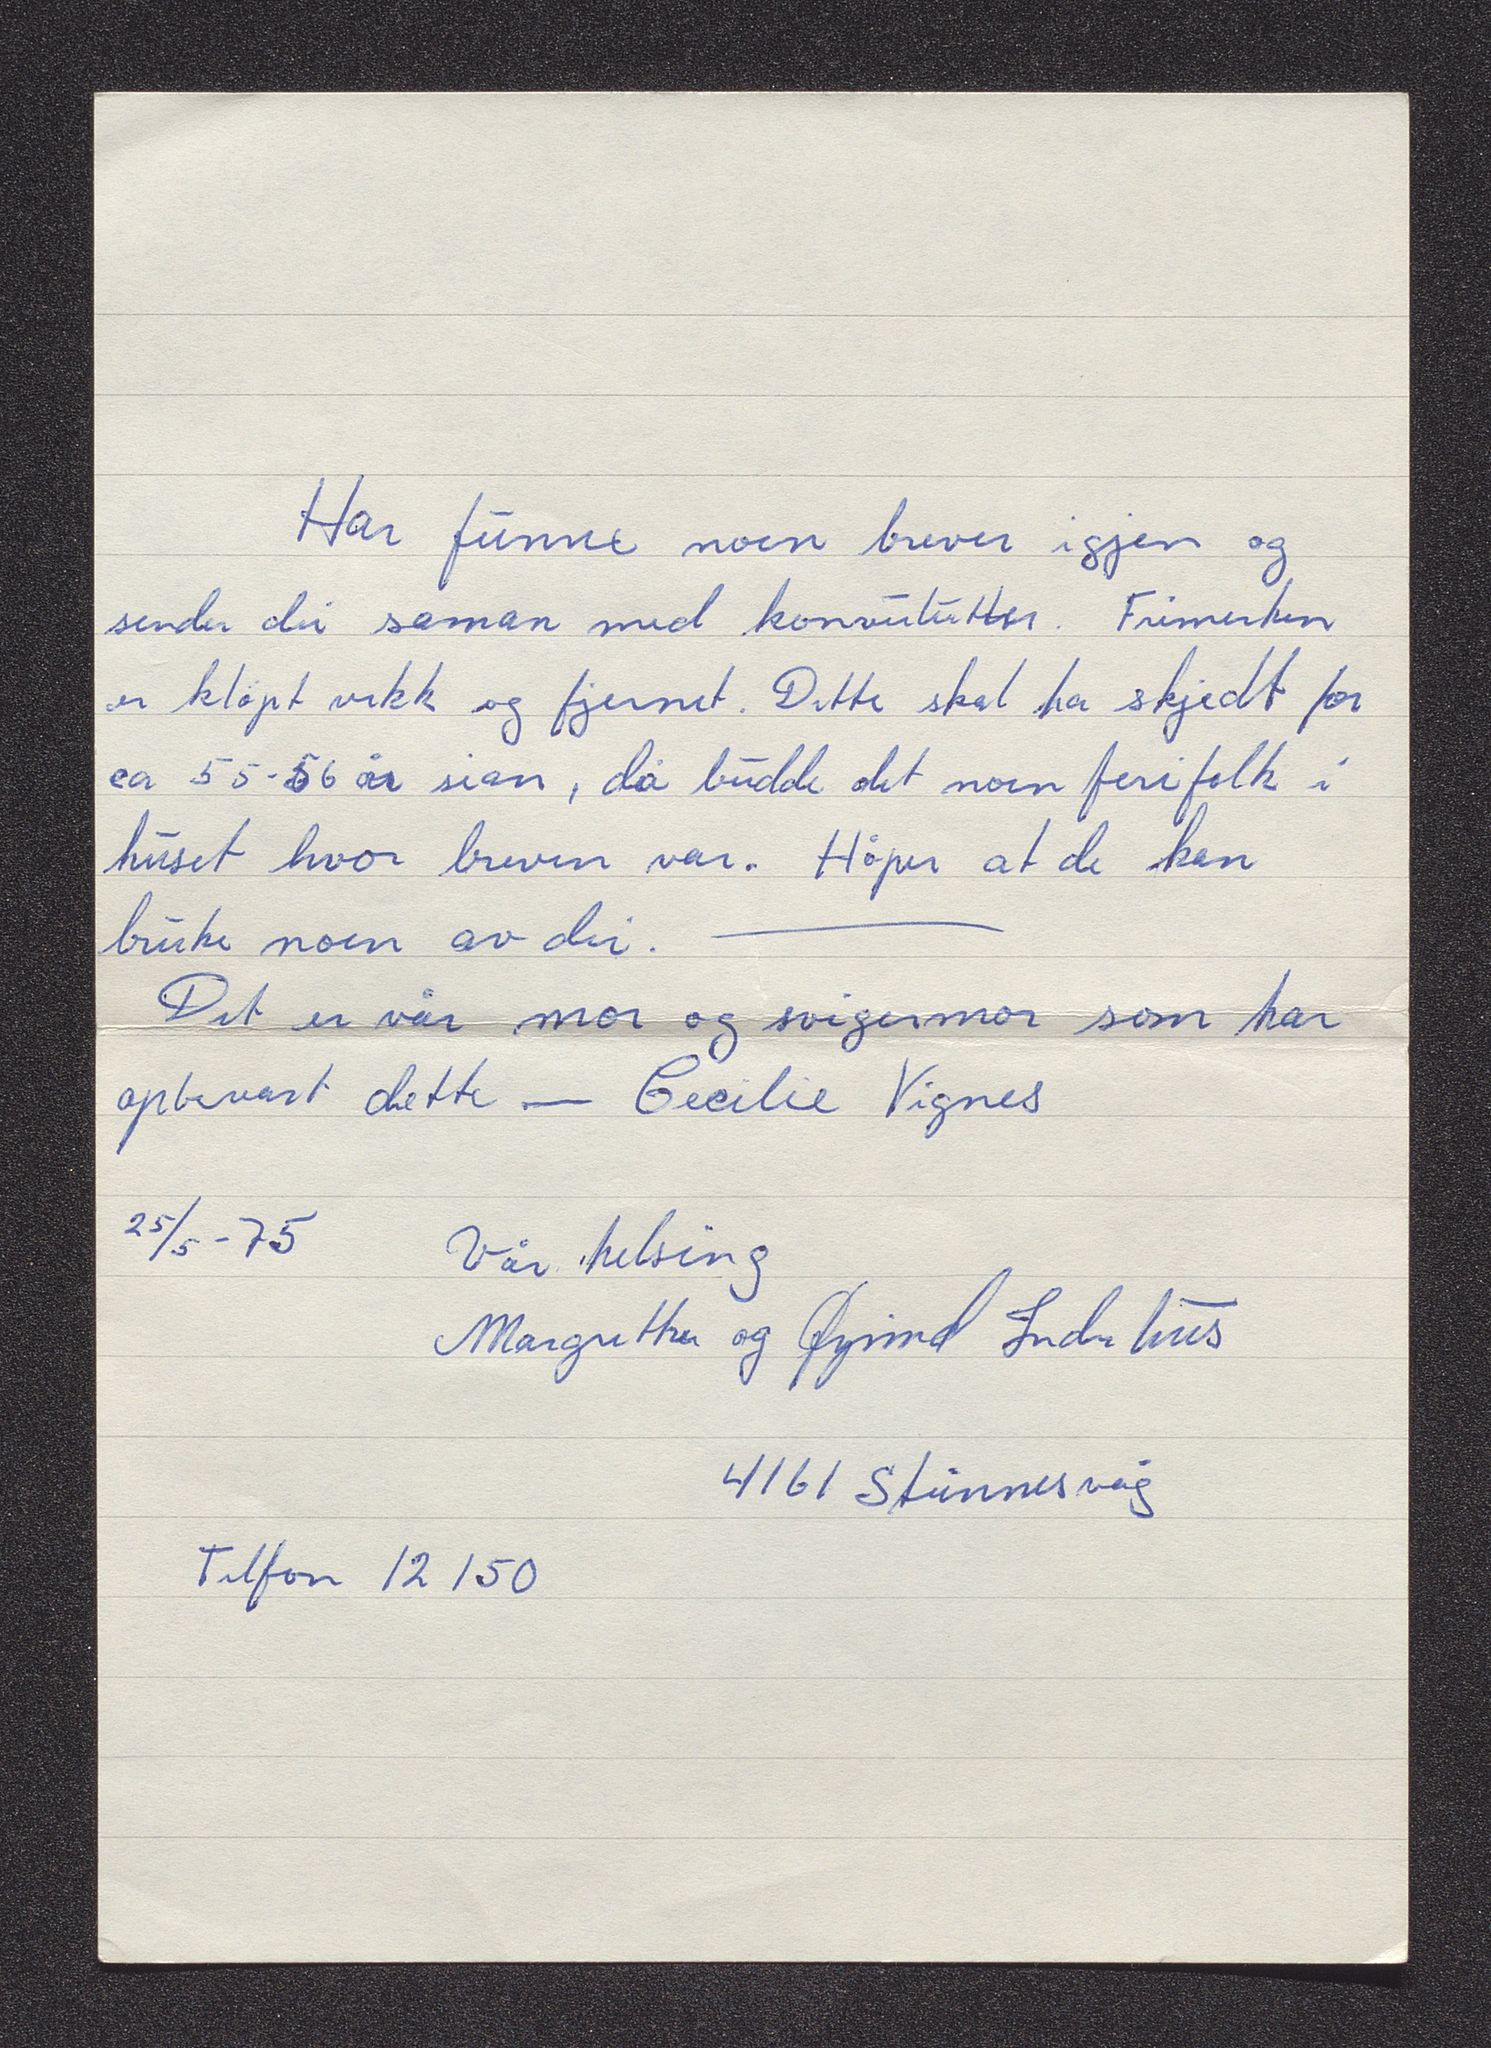 Har funne noen brever igjen og
sender dei saman med konvulutter. Frimerken
er klipt vekk og fjernet. Dette skal ha skjedt for
ca 55-56 år sian, da budde det noen feriefolk i
huset hvor breven var. Håper at de kan
bruke noen av dei. —
Det er vår mor og svigermor som har
opbevart dette — Cecilie Vignes
25/5-75 Vår helsing
Margrethe og Øyvind Indrehus
4161 Stunnesvåg
Telfon 12150